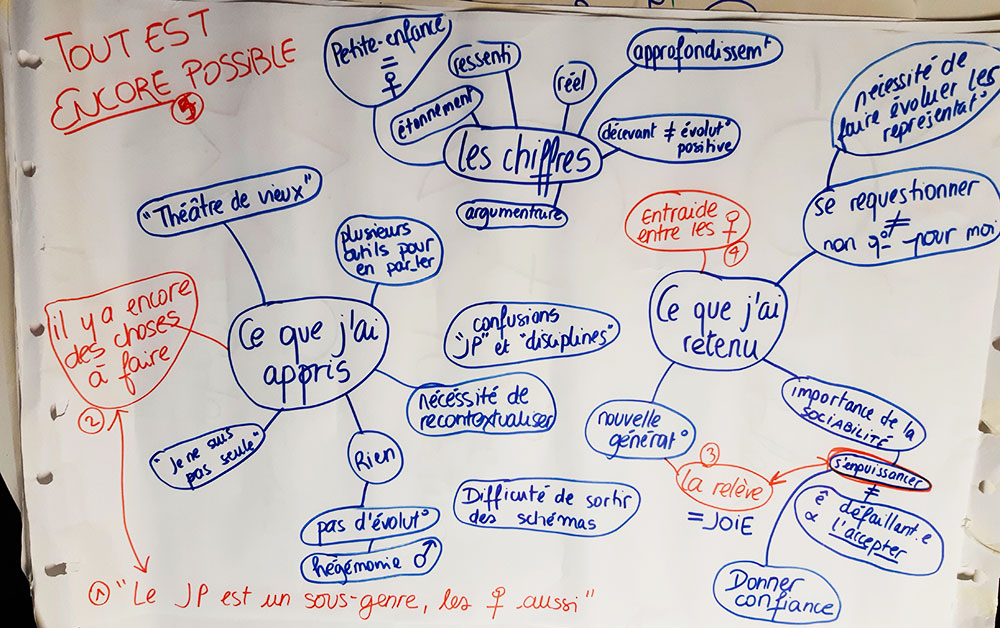 TOUT EST
ENCORE POSSIBLE
5
Petite-enfance
=
♀
ressenti
étonnement
réel
approfondissemt
les chiffres
décevant ≠ évolut°
positive
argumentaire
nécessité de
faire évoluer les
représentat°
se requestionner
≠
pour moi
entraide
entre les ♀
4
Ce que j'ai
retenu
nouvelle
générat°
3
la relève
= JOIE
importance de la
SOCIABILITÉ
s'enpuissancer
≠
défaillant.e
l'accepter
Donner
confiance
"Théâtre de vieux"
plusieurs
outils pour
en par_ler
il y a encore
des choses
à faire
2
Ce que j'ai
appris
confusions
"JP" et "disciplines"
nécéssité de
recontextualiser
"Je ne suis
pas seule"
Rien
pas d'évolut°
hégémonie ♂
Difficuté de sortir
des schémas
1 "Le JP est un sous-genre, les ♀ aussi"